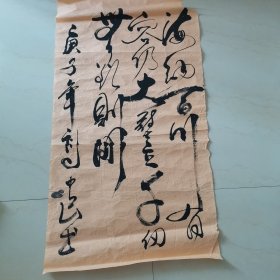 海纳百川 有
容乃大壁立千仞
無欲則剛
庚子年